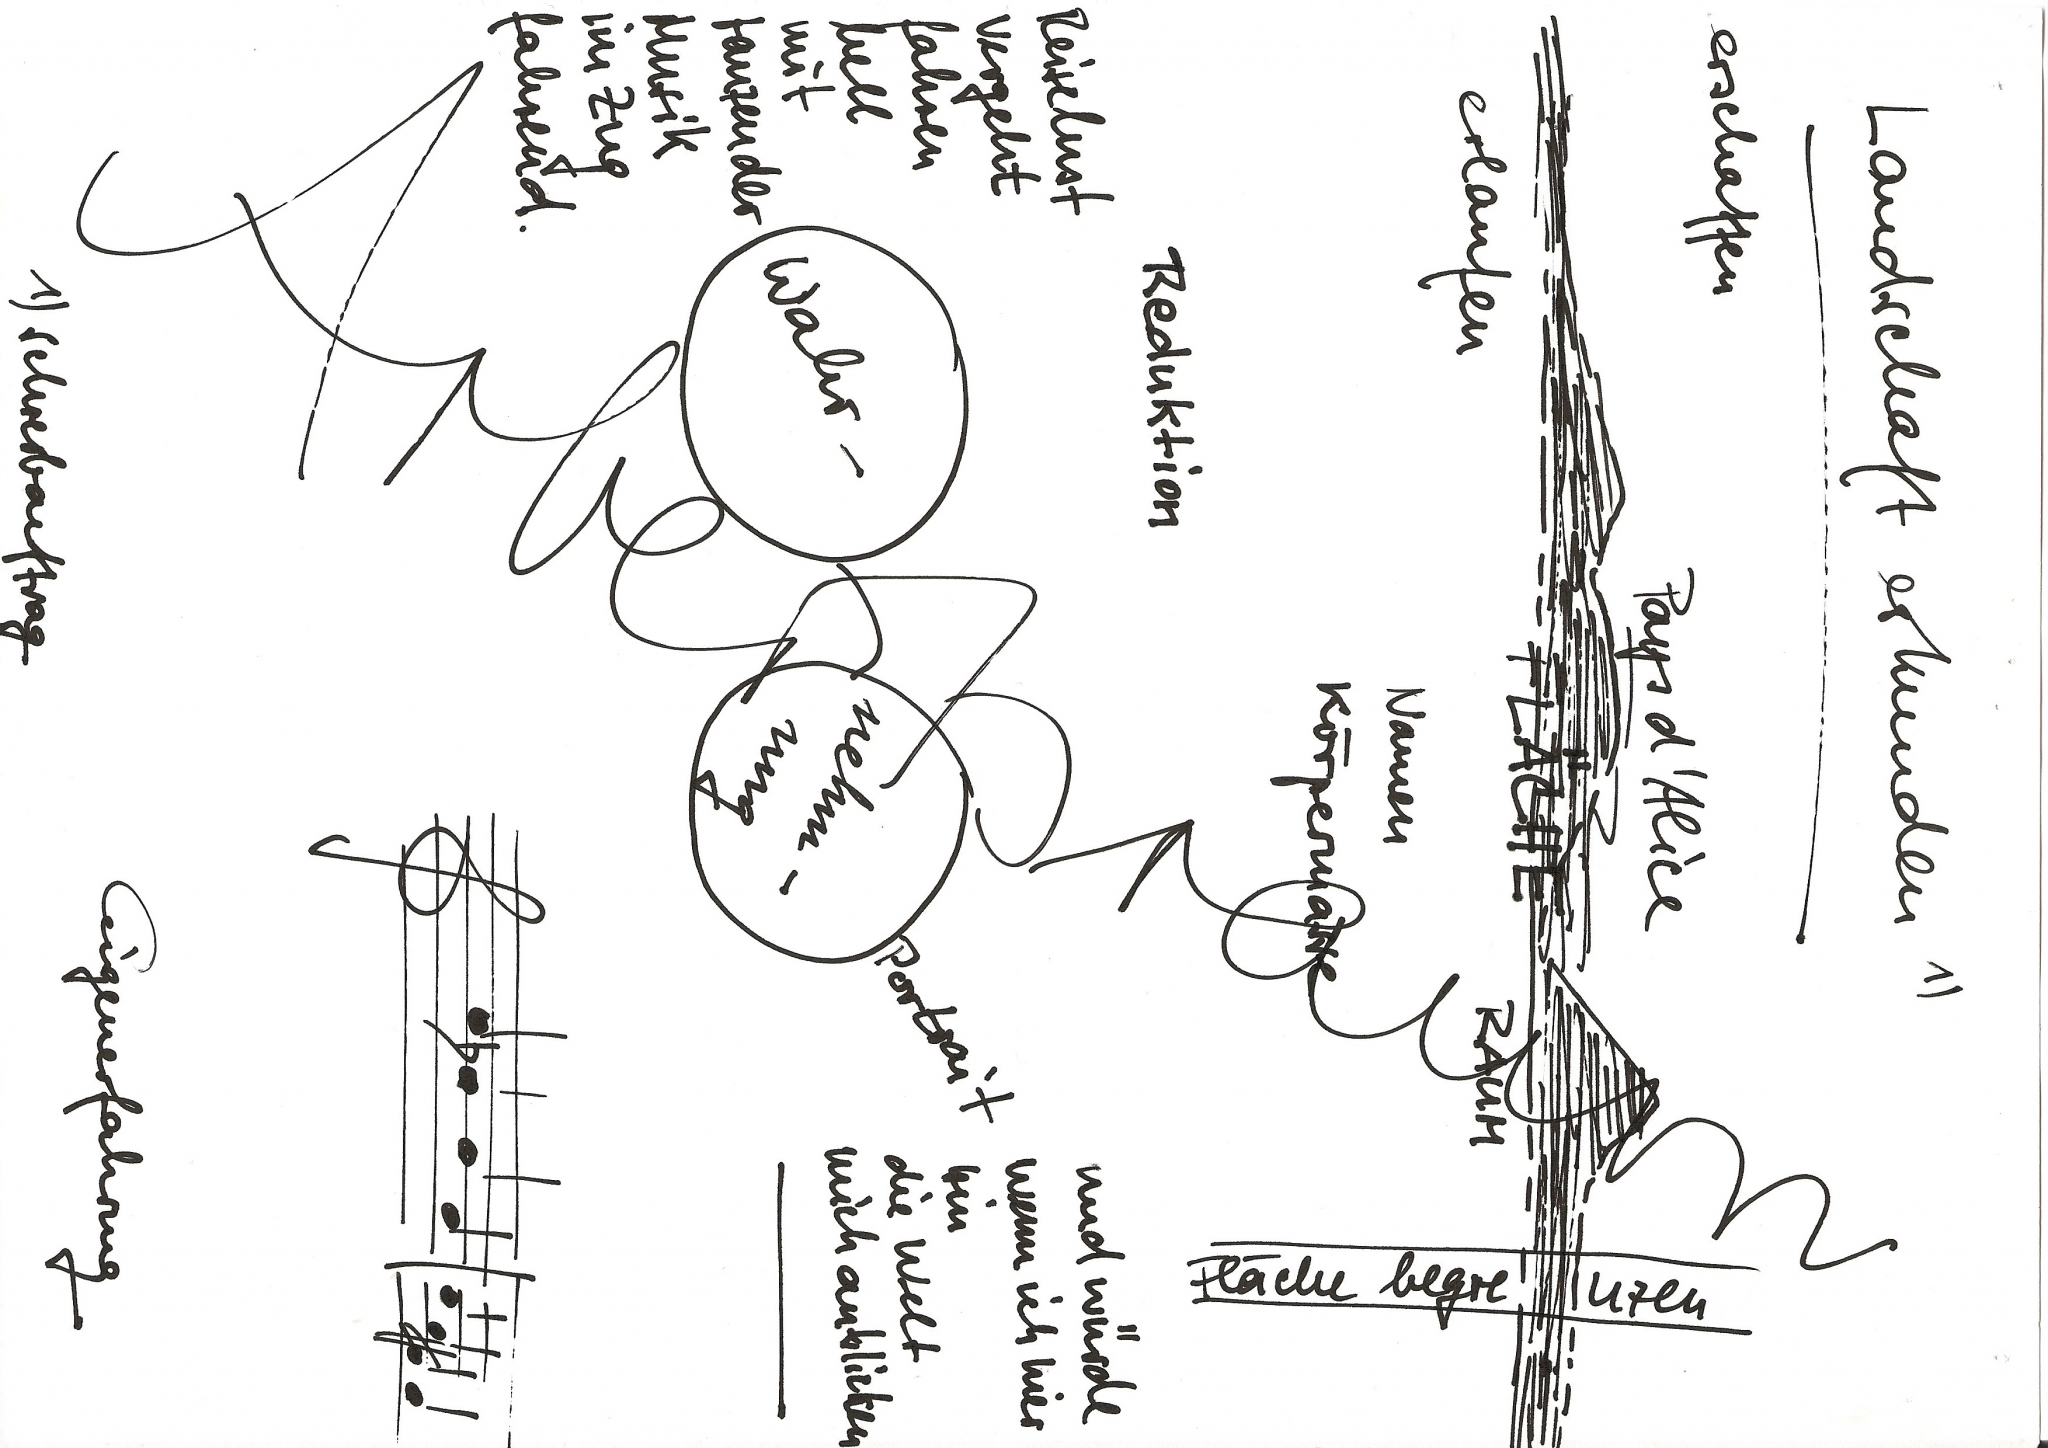 Landschaft erkunden 1)
erschaffen
Pays d'Alice
erlaufen
FLÄCHE
RAUM
Fläche begrenzen
Namen
Körpermaße
Reduktion
Reiselust
vergeht
fahren
hell
mit
tanzender
Musik
im Zug
fahrend.
Wahr-
nehm-
ung
Portrait
und würde
wenn ich hier
bin
die Welt
mich anblicken
1) Schreibauftrag
Eigenerfahrung